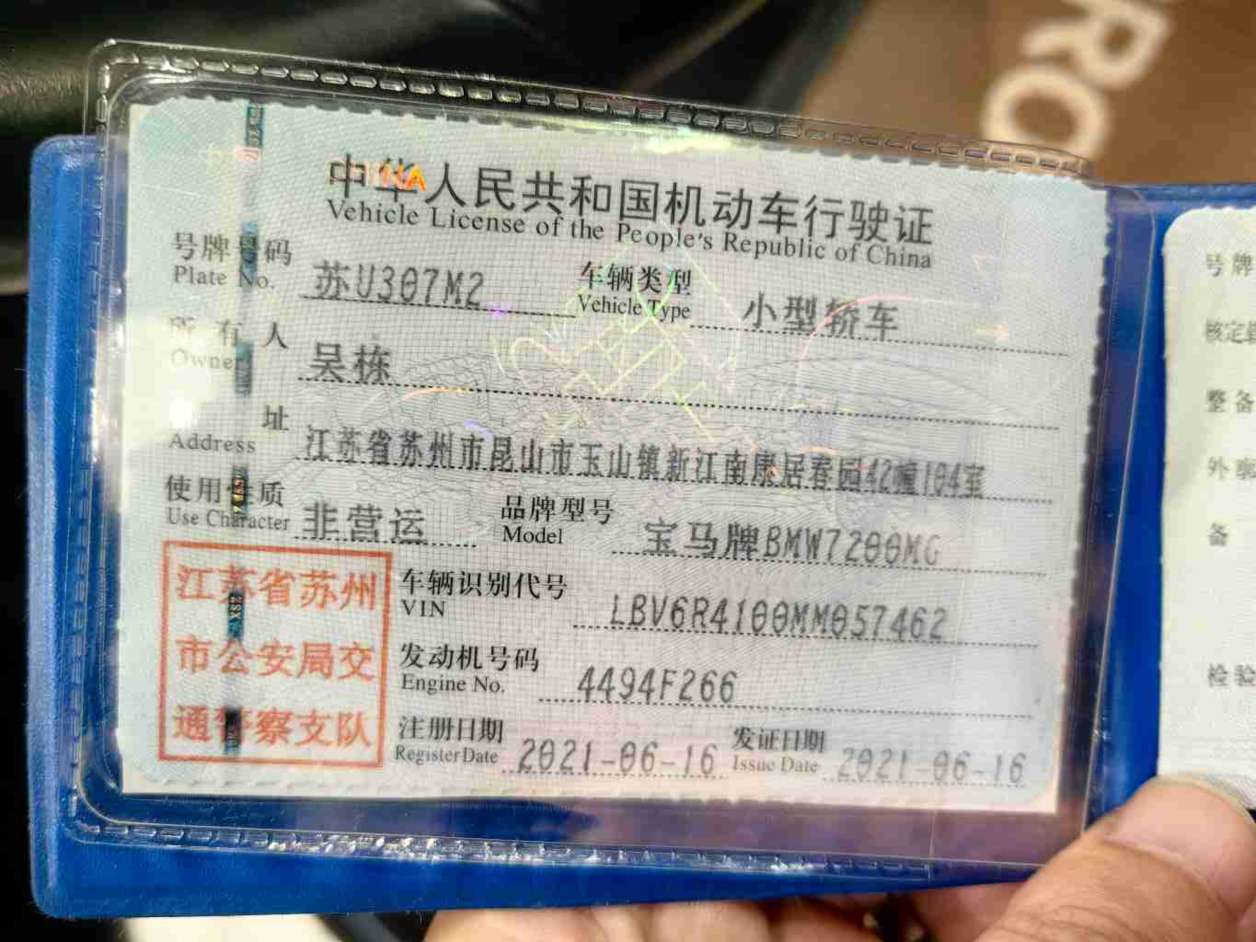 RO
中华人民共和国机动车行驶证
Vehicle License of the People's Republic of China
号牌号码 苏U307M2 车辆类型 小型轿车
Plate No. Vehicle Type
所有人 吴栋
Owner
址 江苏省苏州市昆山市玉山镇新江南康居春园42幢104室
Address
使用性质 非营运 品牌型号 宝马牌BMW7200MG
Use Character Model
江苏省苏州
市公安局交
通警察支队
车辆识别代号 LBV6R4100MM057462
VIN
发动机号码 4494F266
Engine No.
注册日期 2021-06-16 发证日期 2021-06-16
Register Date Issue Date
号牌
核定
整备
外廓
备
检验